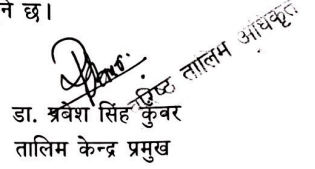 ने छ।
वरिष्ठ तालिम अधिकृत
डा. प्रवेश सिंह कुँवर
तालिम केन्द्र प्रमुख